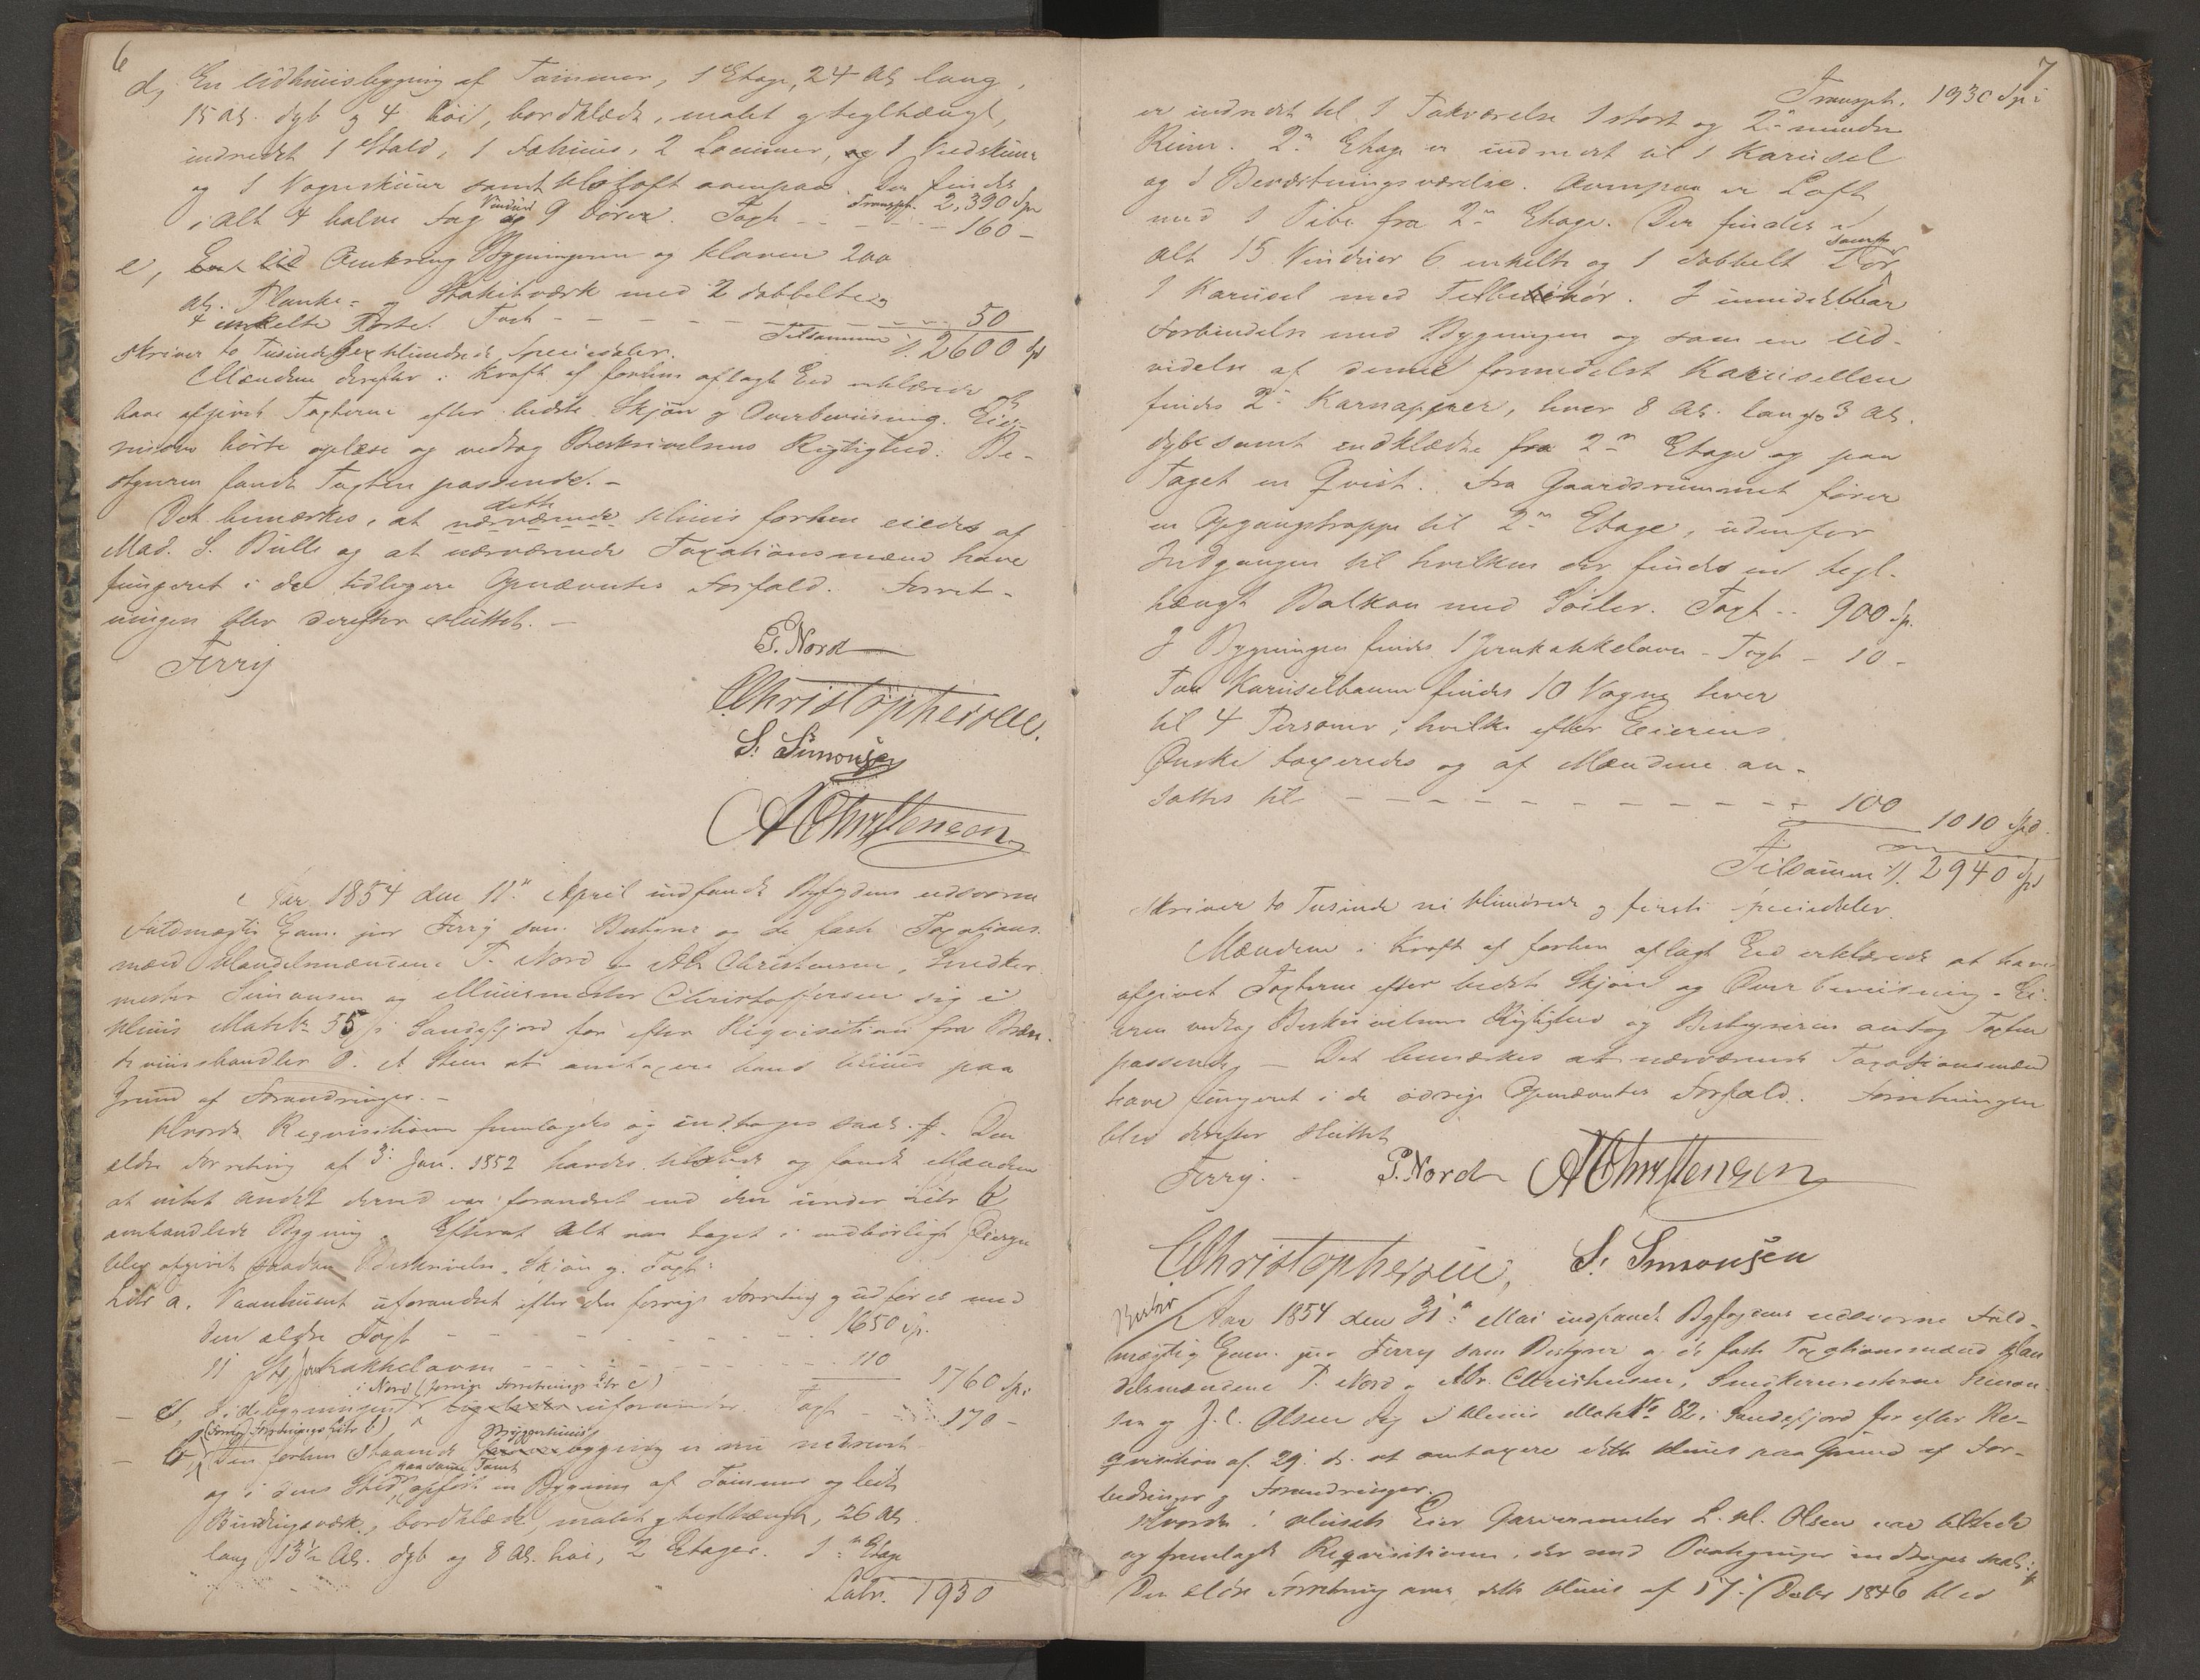 6
d, En Udhuusbygning af Tømmer, 1 Etage, 24 Al. lang,
15 Al. dyb og 4 høi, bordklædt, malet og teglhængt,
indredet 1 Stald, 1 Fæhuus, 2 Locummer, og 1 Vedskuur
og 1 Vognskuur samt Høloft ovenpaa. Der findes
Transpt. 2,390 Spd
i alt 4 halve Fag Vinduer og 9 Døre. Taxt - - - - 160 -
e, Omkring Bygningerne og Haven 200
Al. Planke- og Stakitværk med 2 dobbelte og
4 enkelte Porte. Taxt - - - - - 50
Tilsammen 2600 Spd
skriver to Tusinde Sex Hundrede Speciedaler.
Mændene derefter i Kraft af forhen aflagt Eed erklærede at
have afgivet Taxterne efter bedste Skjøn og Overbeviisning. Eier-
inden hørte oplæse og vedtog Beskrivelsens Rigtighed. Be-
styreren fandt Taxten passende. -
Det bemærkes, at dette nærværende Huus forhen eiedes af
Mad. S. Bulls og at nærværende Taxationsmænd have
fungeret i de tidligere Opnævntes Forfald. Forret-
ningen blev derefter sluttet. -
Ferry
P. Nord
Christophersen.
S. Simonsen
A Christensen
Aar 1854 den 11te April indfandt Byfogdens edsvorne
Fuldmægtig Exam. jur. Ferry som Bestyrer og de faste Taxations-
mænd Handelsmændene P. Nord og Abr Christensen, Snedker-
mester Simonsen og Muurmester Christoffersen sig i
Huus Matr No 55 i Sandefjord for efter Reqvisition fra Bræn-
deviinshandler O. A. Steen at omtaxere hans Huus paa
Grund af Forandringer. -
Hvorda Reqvisitionen fremlagdes og indtages saal. #. Den
ældre Forretning af 3. Jan. 1852 havdes tilstede og fandt Mændene
at intet andet derved var forandret end den under Litr b.
omhandlede Bygning. Efterat alt var taget i nedbørligt Øiesyn
blev afgivet saadan Beskrivelse, Skjøn og Taxt:
Litr a. Vaanhuuset uforandret efter den forrige Forretning og udføres med
den ældre Taxt - - - - - - 1650 Sp.
11 Stk Jernkakkelovne - - - - - 110
1760 Sp.
- c, Sidebygningen i Nord (forrige Forretnings Litr c) uforandret Taxt - - 170 -
- b, (Forrige Forretnings Litr b) Den forhen staaende Bryggerhuusbygning er nu nedrevet
og i dens Sted paa samme Tomt opført en Bygning af Tømmer og lidt
Bindingsværk, bordklædt, malet og teglhængt, 26 Al.
lang 13½ Al. dyb og 8 Al. høi, 2 Etager. 1ste Etage
Latr. 1930
7
Transpt. 1930 Spd
er indredet til 1 Takværelse 1 stort og 2de mindre
Rum. 2den Etage er indredet til 1 Karusel
og 1 Beværtningsværelse. Ovenpaa er Loft
med 1 Pibe fra 2den Etage. Der findes i
alt 15 Vinduer 6 enkelte og 1 dobbelt Dør samt
1 Karusel med Tilbehør. I umiddelbar
Forbindelse med Bygningen og som en Ud-
videlse af denne formedelst Karusellen
findes 2de Karnapper, hver 8 Al. lang og 3 Al.
dybe samt indklædte fra 2den Etage og paa
Taget en Qvist. Fra Gaardsrummet fører
en Opgangstrappe til 2den Etage, udenfor
Indgangen til hvilken der findes en tegl-
hængt Balkon med Søiler. Taxt - - 900 Sp.
I Bygningen findes 1 Jernkakkelovn - Taxt - 10 -
Paa Karuselbanen findes 10 Vogne hver
til 4 Personer, hvilke efter Eierens
Ønske taxeredes og af Mændene an-
sattes til - - - - - - - - - - 100
1010 Spd.
Tilsammen 2940 Spd
skriver to Tusinde ni Hundrede og firsti Speciedaler.
Mændene i Kraft af forhen aflagt Eed erklærede at have
afgivet Taxterne efter bedste Skjøn og Overbeviisning. Ei-
eren vedtog Beskrivelsens Rigtighed og Bestyreren antog Taxten
passende. - Det bemærkes at nærværende Taxationsmænd
have fungeret i de øvrige Opnævntes Forfald. Forretningen
blev derefter sluttet
Ferry. P. Nord A Christensen
Christophersen, S. Simonsen
Aar 1854 den 31te Mai indfandt Byfogdens edsvorne Fuld-
mægtig Exam. jur. Ferry som Bestyrer og de faste Taxationsmænd Han-
delsmændene P. Nord og Abr. Christensen, Snedkermesterne Simon-
sen og J. C. Olsen sig i Huus Matr No 82 i Sandefjord for efter Re-
qvisition af 29. ds. at omtaxere dette Huus paa Grund af For-
bedringer og Forandringer.
Hvorda Husets Eier Garvermester L. H. Olsen var tilstede
og fremlagde Reqvisitionen, der med Paategninger indtages saal. #
Den ældre Forretning over dette Huus af 17. Octbr 1846 blev